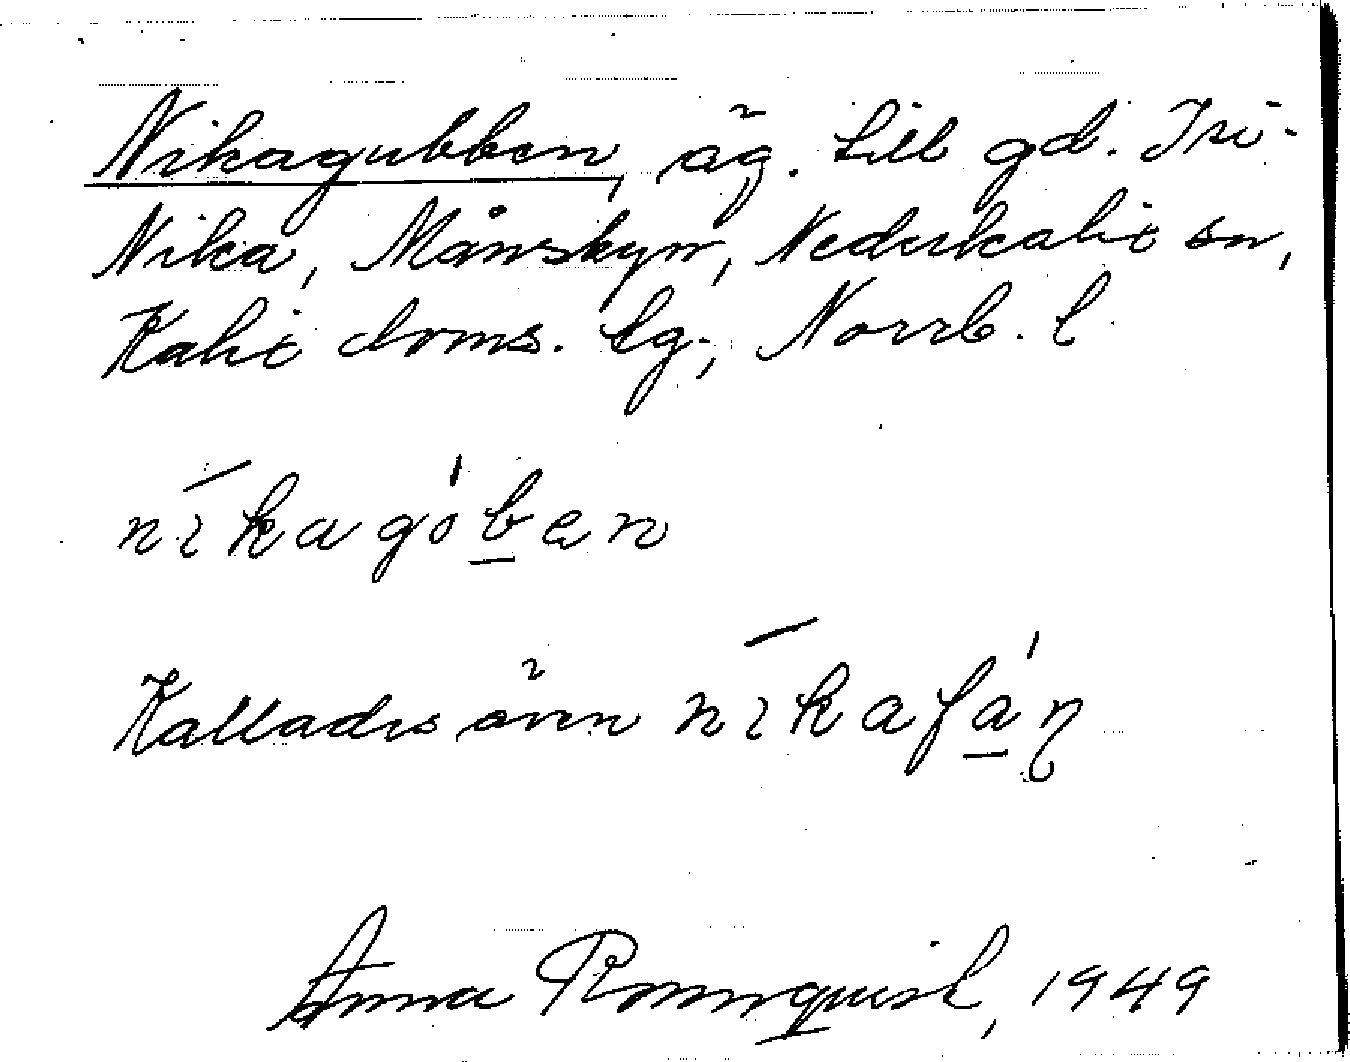 Nikagubben, äg. till gd. Tri-
Nika, Månskyn, Nederkalix sn,
Kalix doms. lg., Norrb. l.
níkagóben
Kallades även níkafán
Anna Rönnquist, 1949